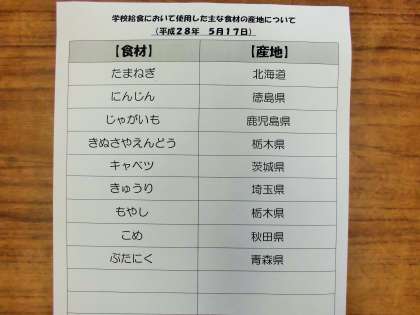 学校給食において使用した主な食材の産地について
(平成28年 5月17日)
【食材】 【産地】
たまねぎ 北海道
にんじん 徳島県
じゃがいも 鹿児島県
きぬさやえんどう 栃木県
キャベツ 茨城県
きゅうり 埼玉県
もやし 栃木県
こめ 秋田県
ぶたにく 青森県